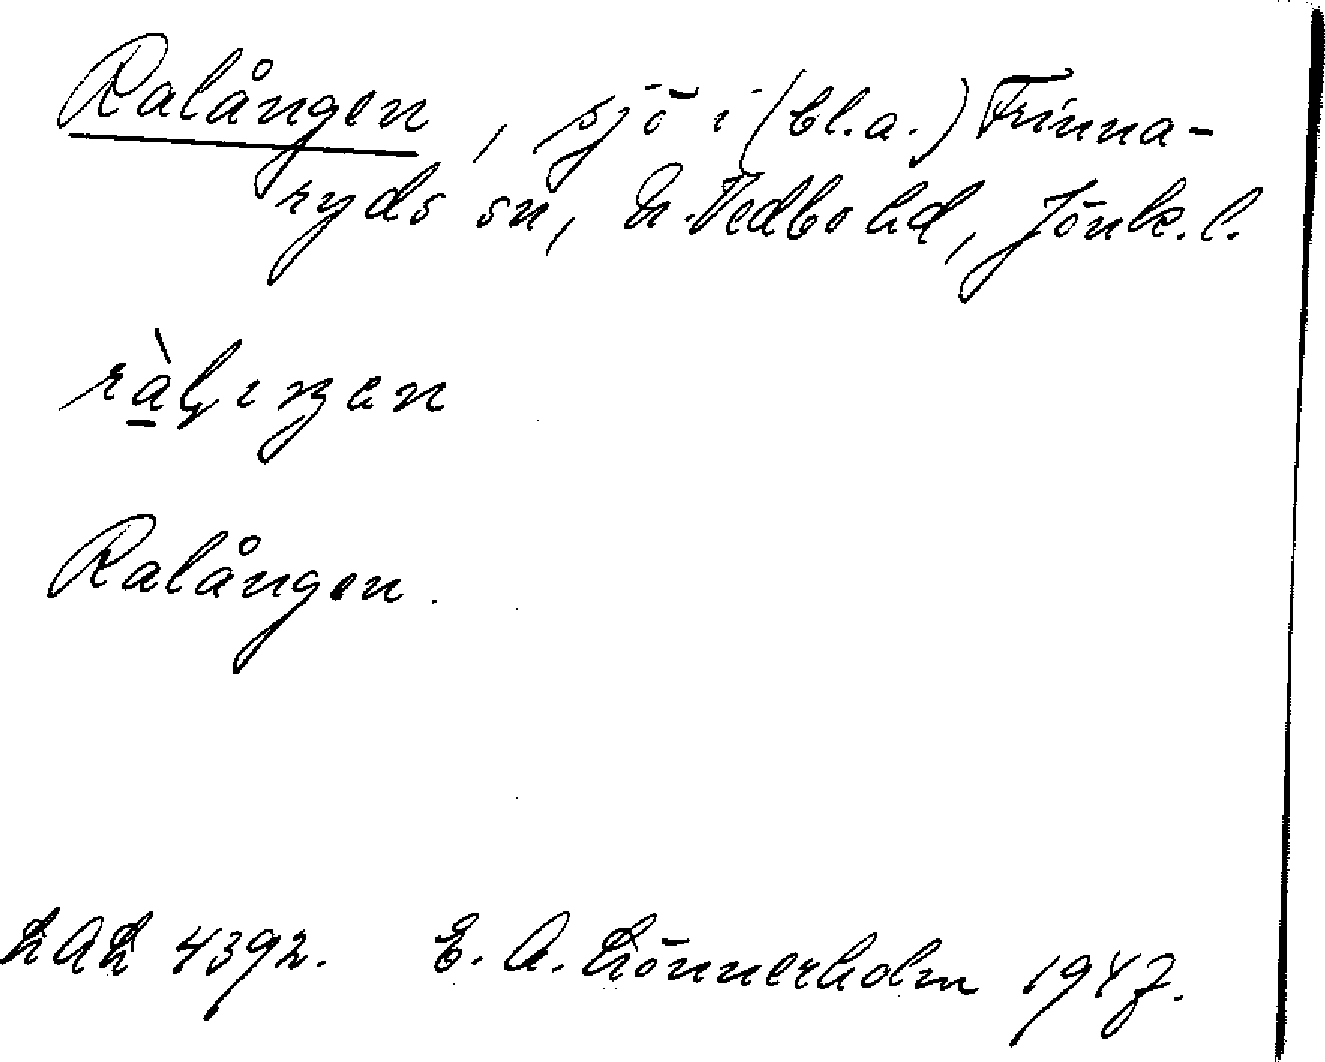 Ralången, sjö i (bl.a.) Frinna-
ryds sn, N. Vedbo hd, Jönk. l.
Ralången.
4392. E. A. Lönnerholm 1947.